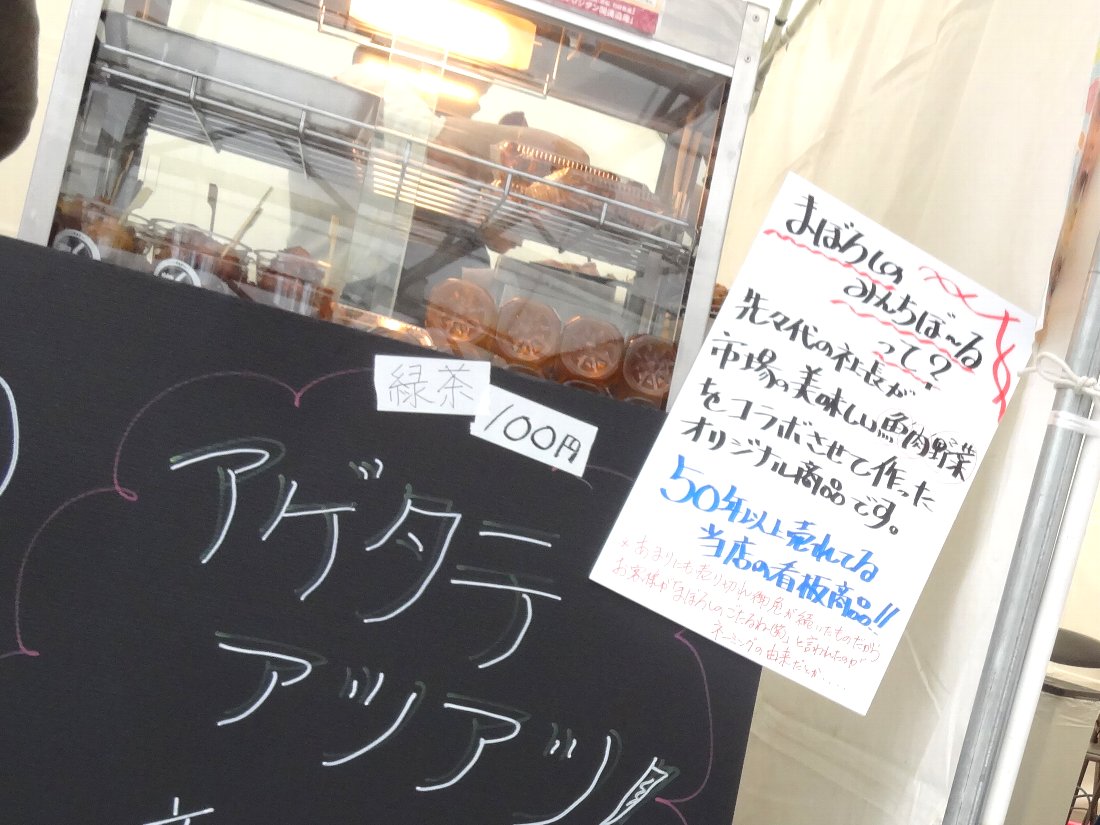 緑茶
100円
アゲタテ
アツアツ!
まぼろしの
みんちぼ～る
って?
先々代の社長が
市場の美味しい魚肉野菜
をコラボさせて作った
オリジナル商品です。
50年以上売れてる
当店の看板商品!!
※あまりにも売り切れ御免が続いたものだから
お客様が「まぼろしのごたるね(笑)」と言われたのが
ネーミングの由来だとか.....